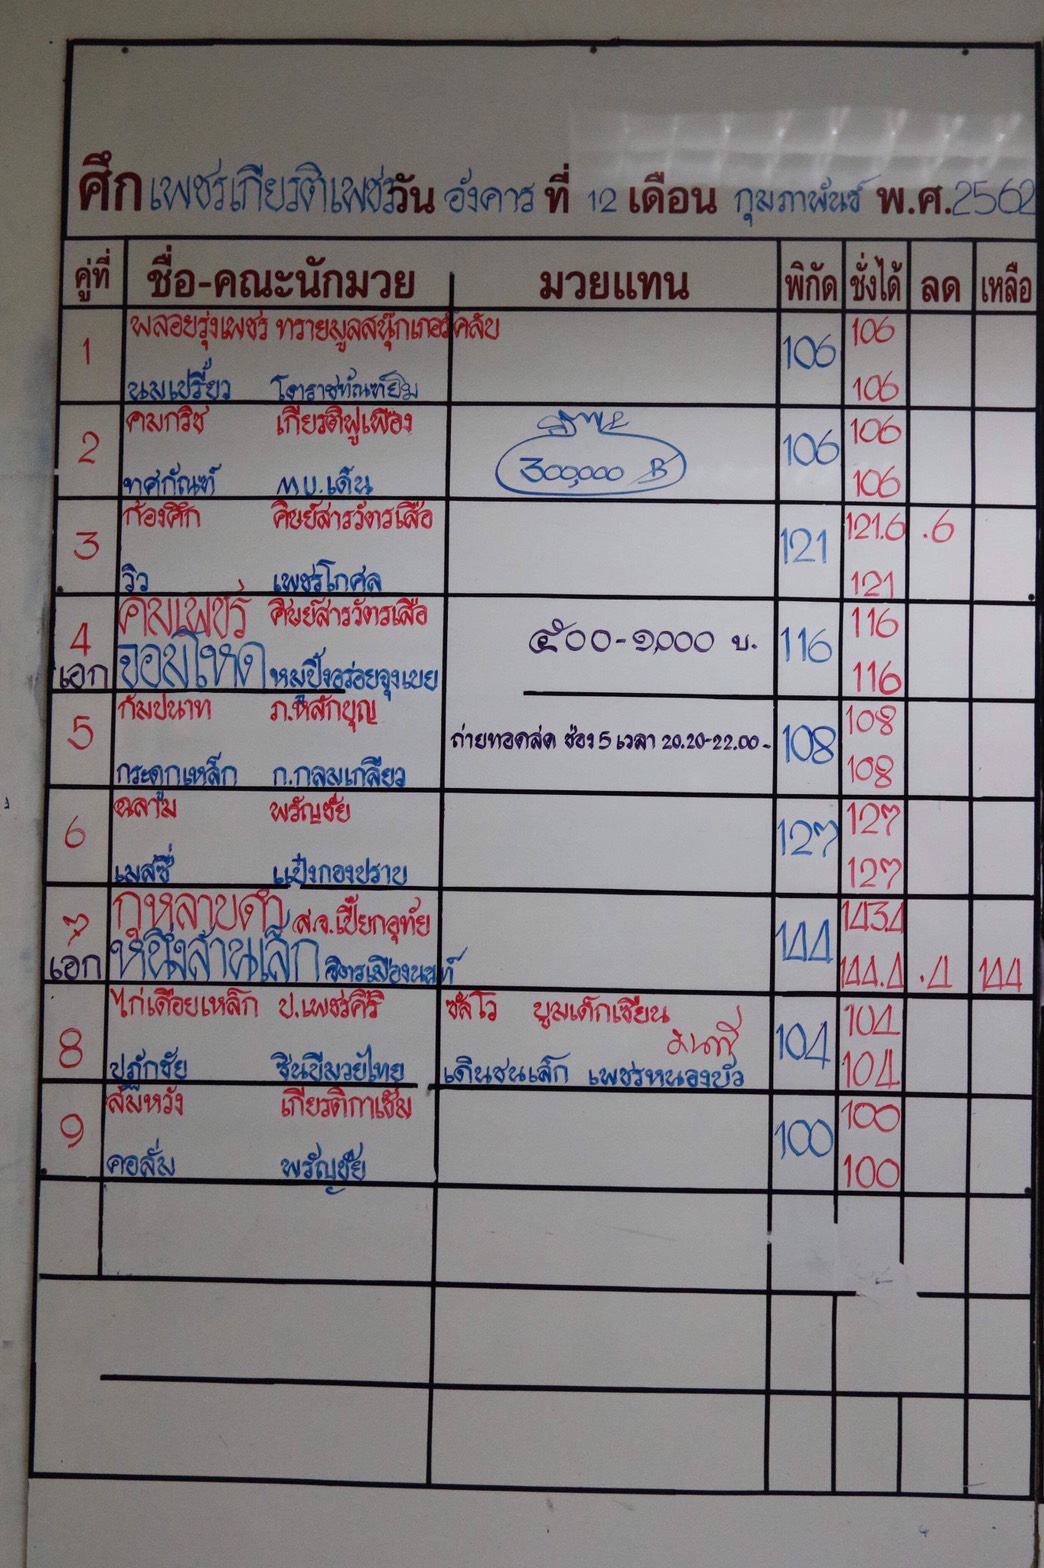 ศึก เพชรเกียรติเพชร วัน อังคาร ที่ 12 เดือน กุมภาพันธ์ พ.ศ. 2562
คู่ที่ ชื่อ-คณะนักมวย มวยแทน พิกัด ชั่งได้ ลด เหลือ
1 พลอยรุ่งเพชร ทรายมูลสนุ๊กเกอร์คลับ 106 106
นมเปรี้ยว 106
2 คมกริช เกียรติฟูเฟื่อง 106 106
ทศกัณฑ์ ทบ.เด่น 300,000 B 106
3 ก้องศึก ศิษย์สารวัตรเสือ 121 121.6 .6
วิว เพชรโกศล 121
4 คมเพชร ศิษย์สารวัตรเสือ ๕๐๐-๑,๐๐๐ บ. 116 116
เอก จอมโหด หมูปิ้งอร่อยจุงเบย 116
5 กัมปนาท ภ.หลักบุญ 108 108
ถ่ายทอดสด ช่อง 5 เวลา 20.20-22.00-
กระดูกเหล็ก ก.กลมเกลียว 108
6 ฉลาม พรัญชัย 127 127
เมสซี่ แป๋งกองปราบ 127
7 กุหลาบดำ ส.จ.เปี๊ยกอุทัย 144 143.4
เอก หนึ่งล้านเล็ก จิตรเมืองนนท์ 144.4 .4 144
8 ไก่เดือยเหล็ก ป.เพชรศิริ ชัลโว บูมเด็กเซียน 104 104
ปฏักชัย จินปีมวยไทย เดินชนเล็ก เพชรหนองบัว 104
9 สมหวัง เกียรติกาเซ็ม 100 100
คอสั่ม พรัญชัย 100